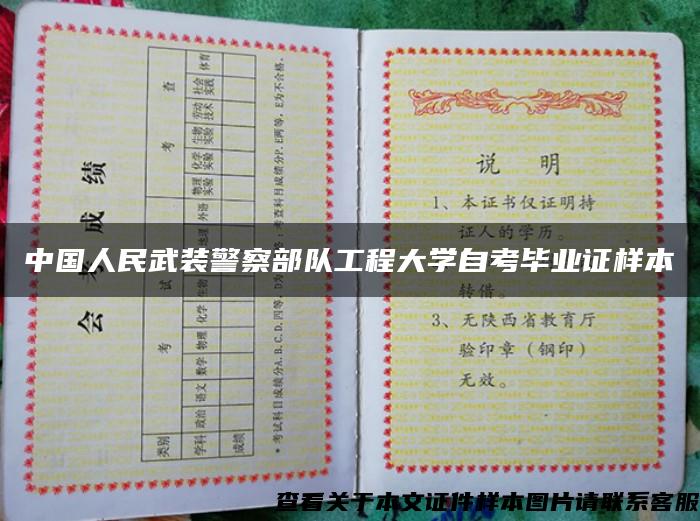 会考成绩
类别 考 试 考 查
学科 政治 语文 数学 物理 化学 生物 地理 外语 物理实验 化学实验 生物实验 劳动技术 社会实践 体育
成绩
*考试科目成绩分A、B、C、D、四等，D为 ；考查科目成绩分P、E两等，E为不合格。
说 明
1、本证书仅证明持
证人的学历。
中国人民武装警察部队工程大学自考毕业证样本
转借。
3、无陕西省教育厅
验印章（钢印）
无效。
查看关于本文证件样本图片请联系客服